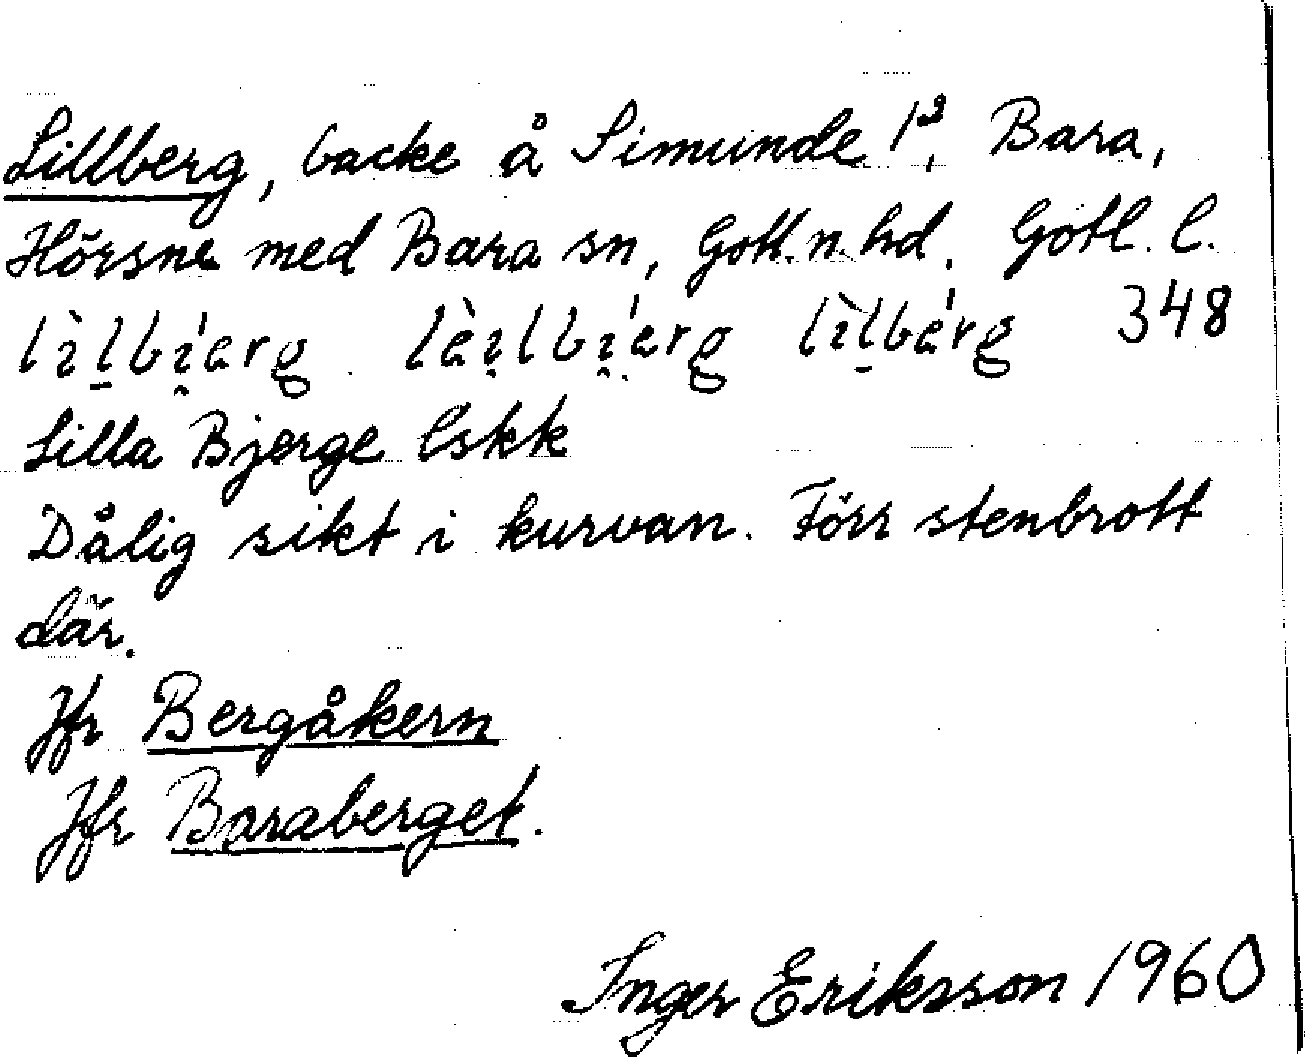 Lillberg, backe å Simunde 1², Bara,
Hörsne med Bara sn, Gotl. n. hd. Gotl. l.
348
Lilla Bjerge Eskk
Dålig sikt i kurvan. Förr stenbrott
där.
Jfr Bergåkern
Jfr Baraberget.
Inger Eriksson 1960